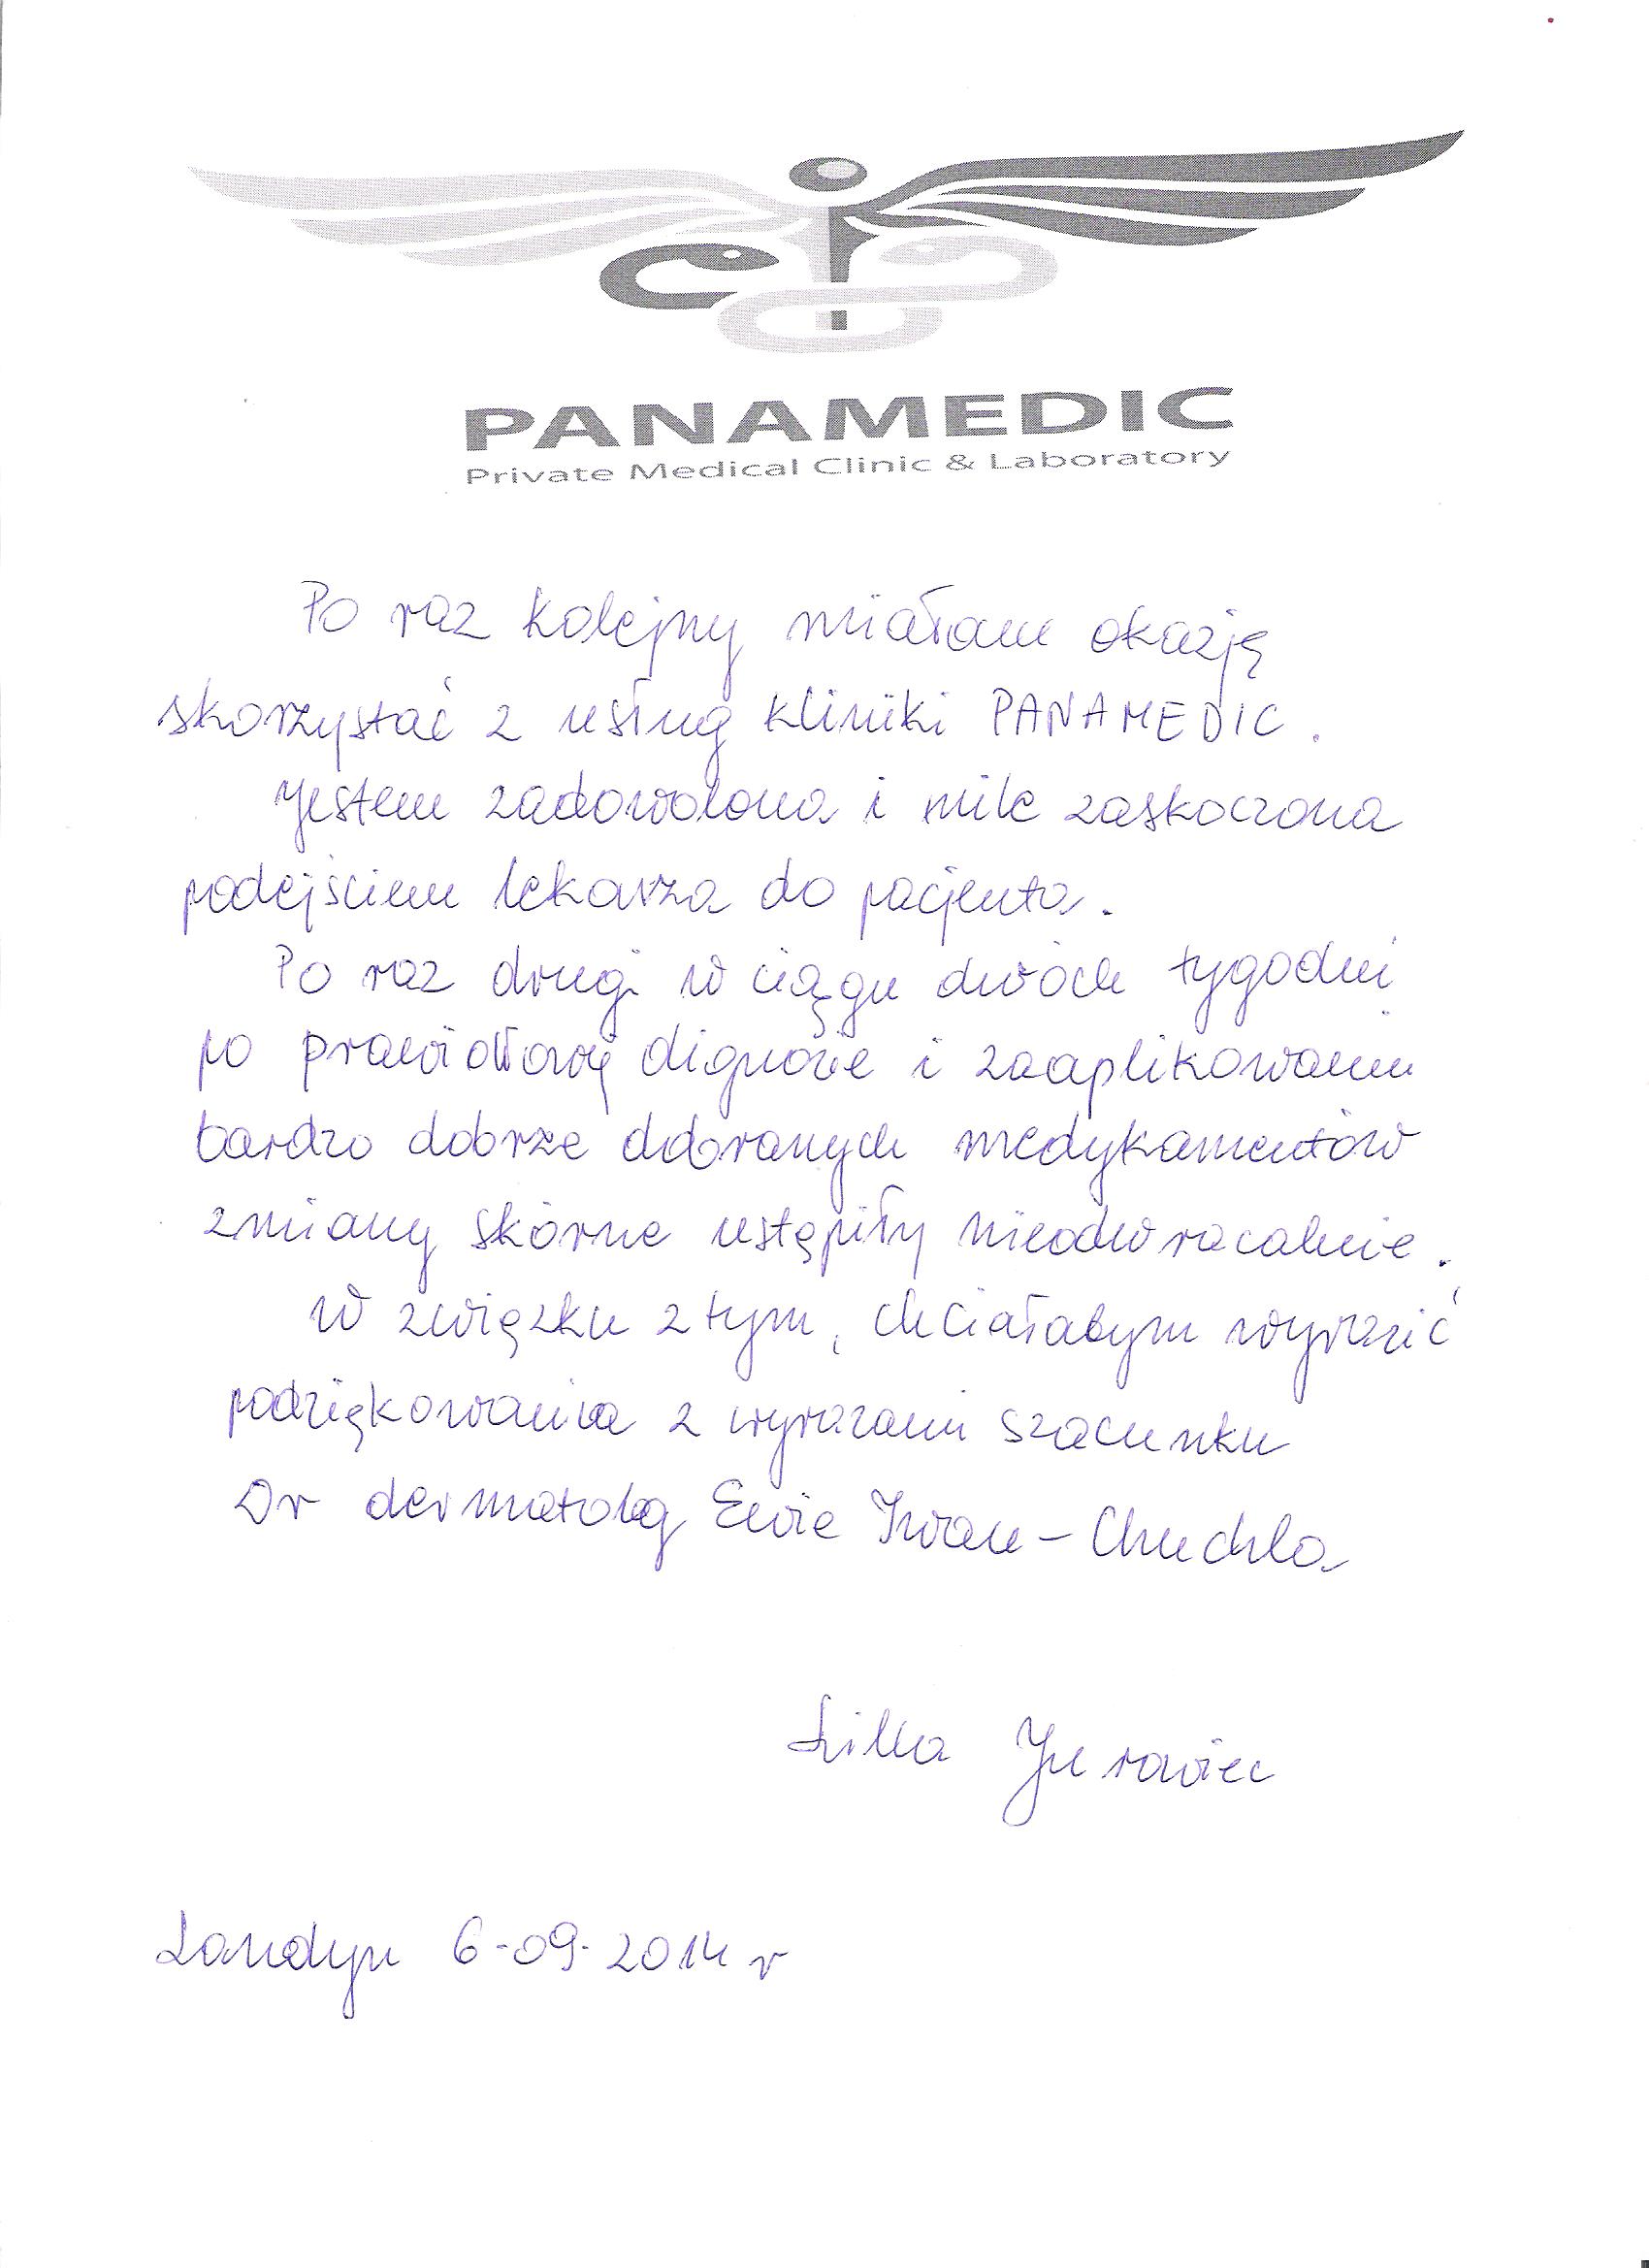 PANAMEDIC
Private Medical Clinic & Laboratory
Po raz kolejny miałam okazję
skorzystać z usług kliniki PANAMEDIC.
Jestem zadowolona i mile zaskoczona
podejściem lekarza do pacjenta.
Po raz drugi w ciągu dwóch tygodni
po prawidłowej dignozie i zaaplikowaniu
bardzo dobrze dobranych medykamentów
zmiany skórne ustąpiły nieodwracalnie.
W związku z tym, chciałabym wyrazić
podziękowania z wyrazami szacunku
Dr dermatolog Ewie Iwan-Chuchla
Lilla Jurowiec
Londyn 6-09-2014 r